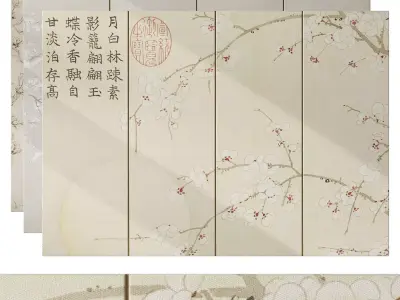 月白林疎素
影籠翩翩玉
蝶冷香融自
甘淡泊存高